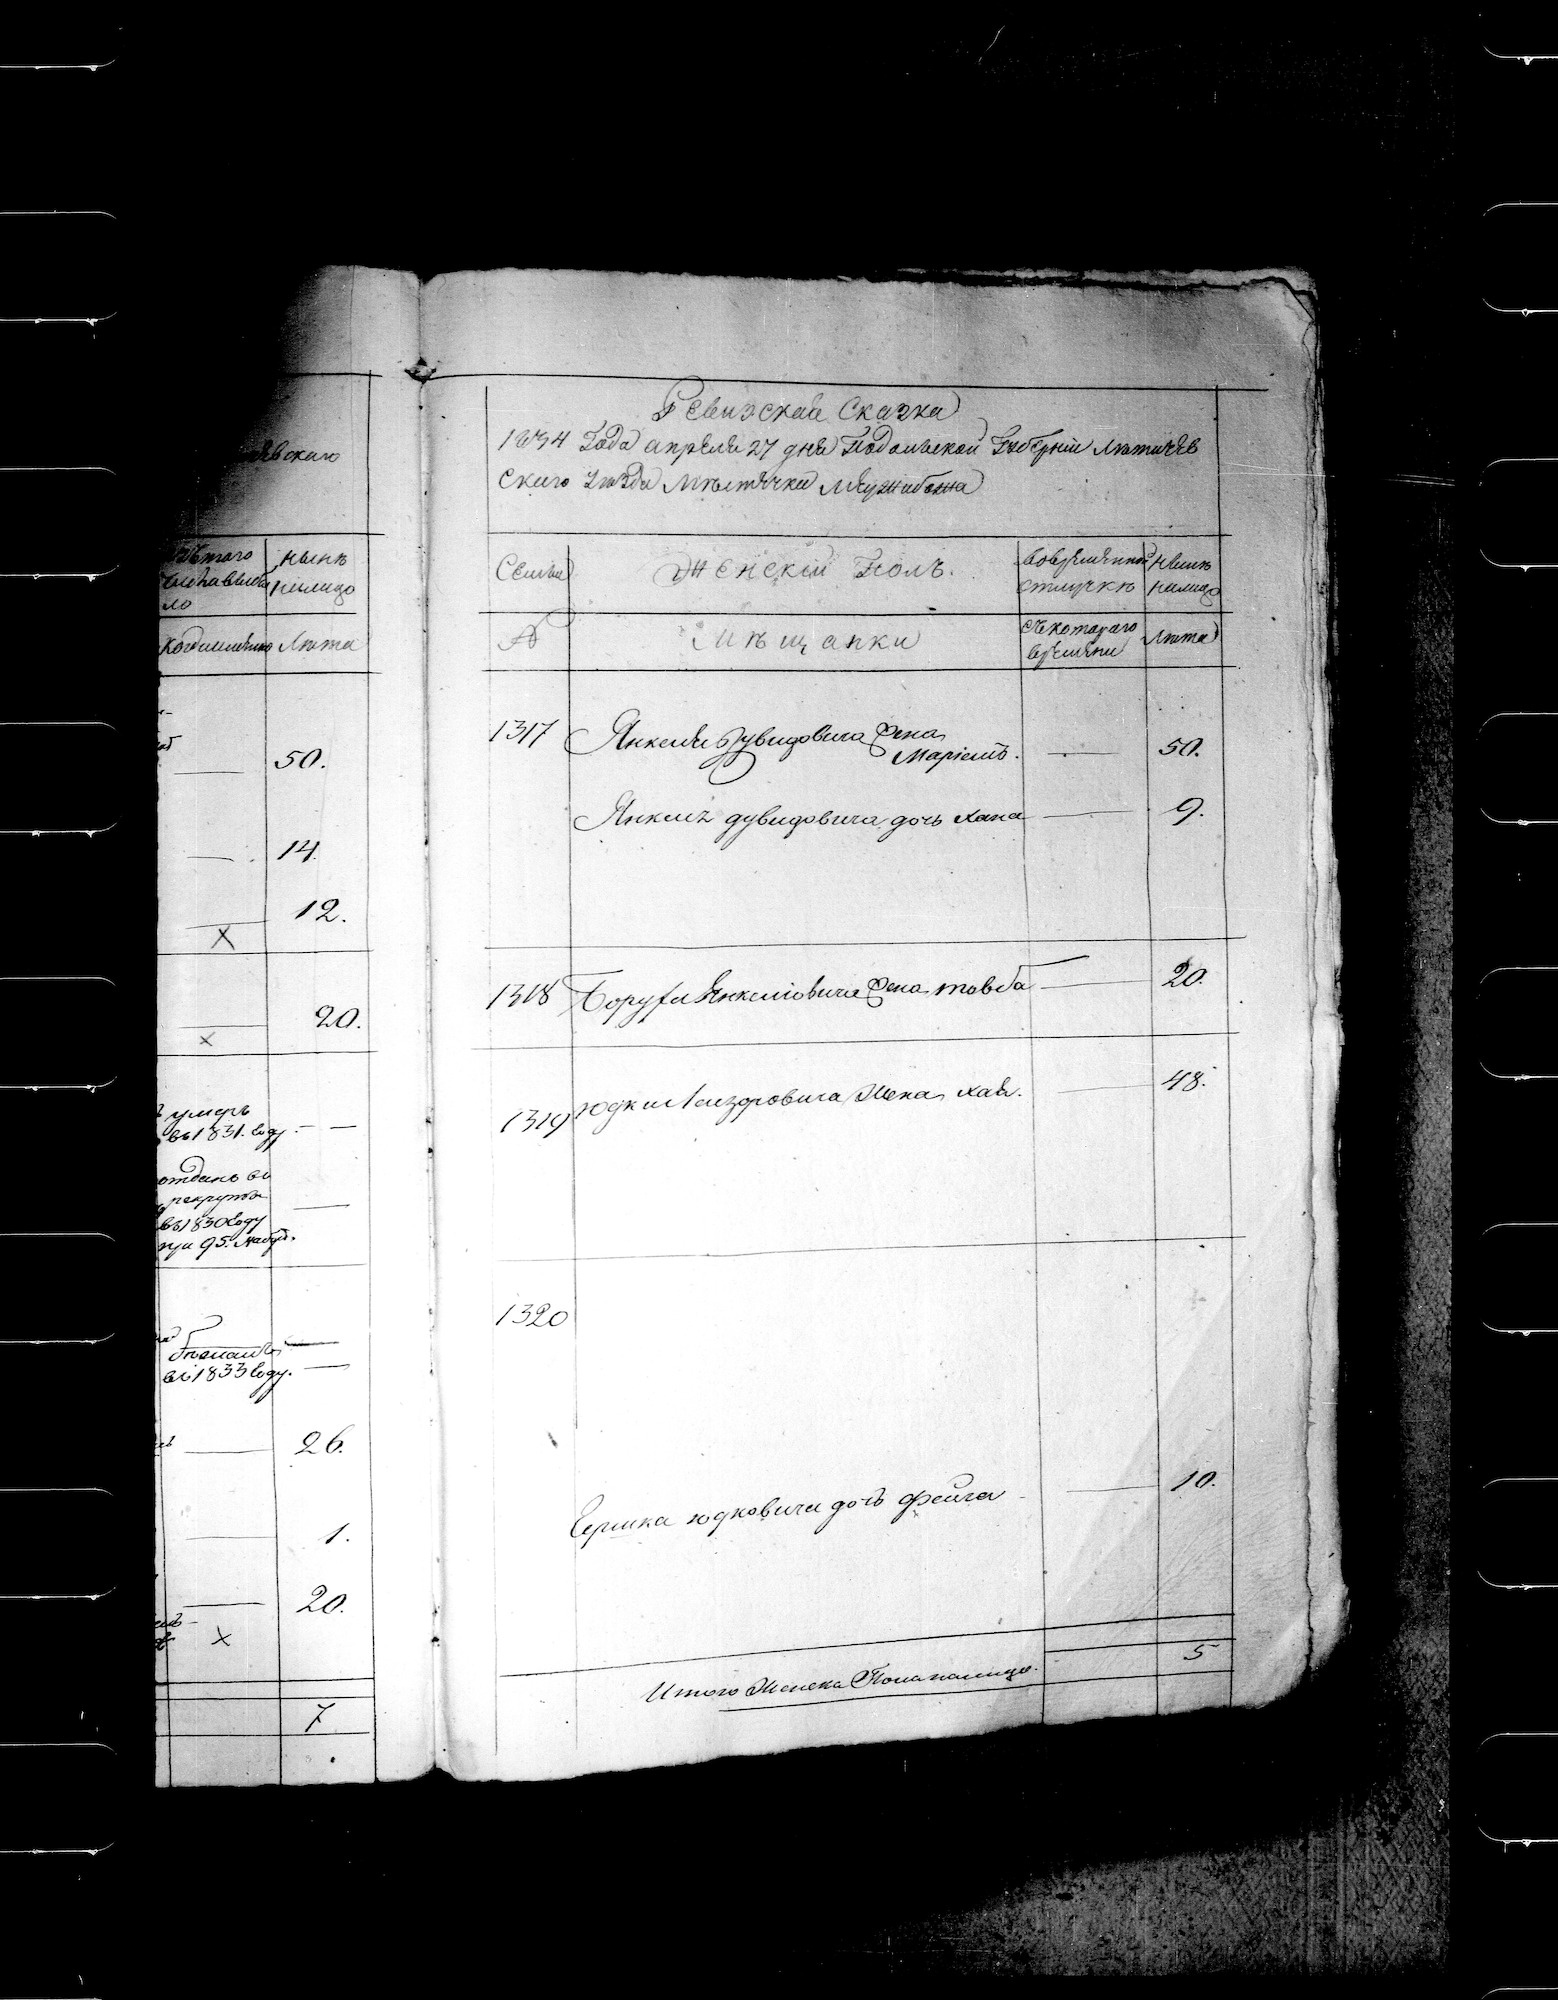 евскаго
изтого
числа выбы
ло
нынѣ
налицо
когда именно
Лѣта
50.
14.
12.
X
20.
x
умеръ
въ 1831. году.
отданъ въ
рекруты
въ 1830 году
при 95. набор.
въ 1833 году.
26.
1.
20.
x
7
Ревизская Сказка
1834 Года апреля 27 дня Подольской Губерніи Лѣтичев
скаго Уѣзда Мѣстечка Межибожа
Семьи
Женскій Полъ.
Вовременной
отлучкѣ
Нынѣ
налицо
№
Мѣщанки
Съкотораго
времени
Лѣта
1317 Янкеля Дувидовича Жена
Маріемъ. 50.
Янкеля дувидовича дочь хана 9.
1318 Боруха Янкелiовича Жена товба 20.
1319 Юдки Лейзоровича Жена хая. 48.
1320
Гершка юдковича дочь фейга 10.
Итого Женска Пола налицо. 5